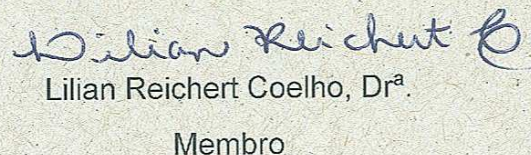 Lilian Reichert C
Lilian Reichert Coelho, Drª.
Membro